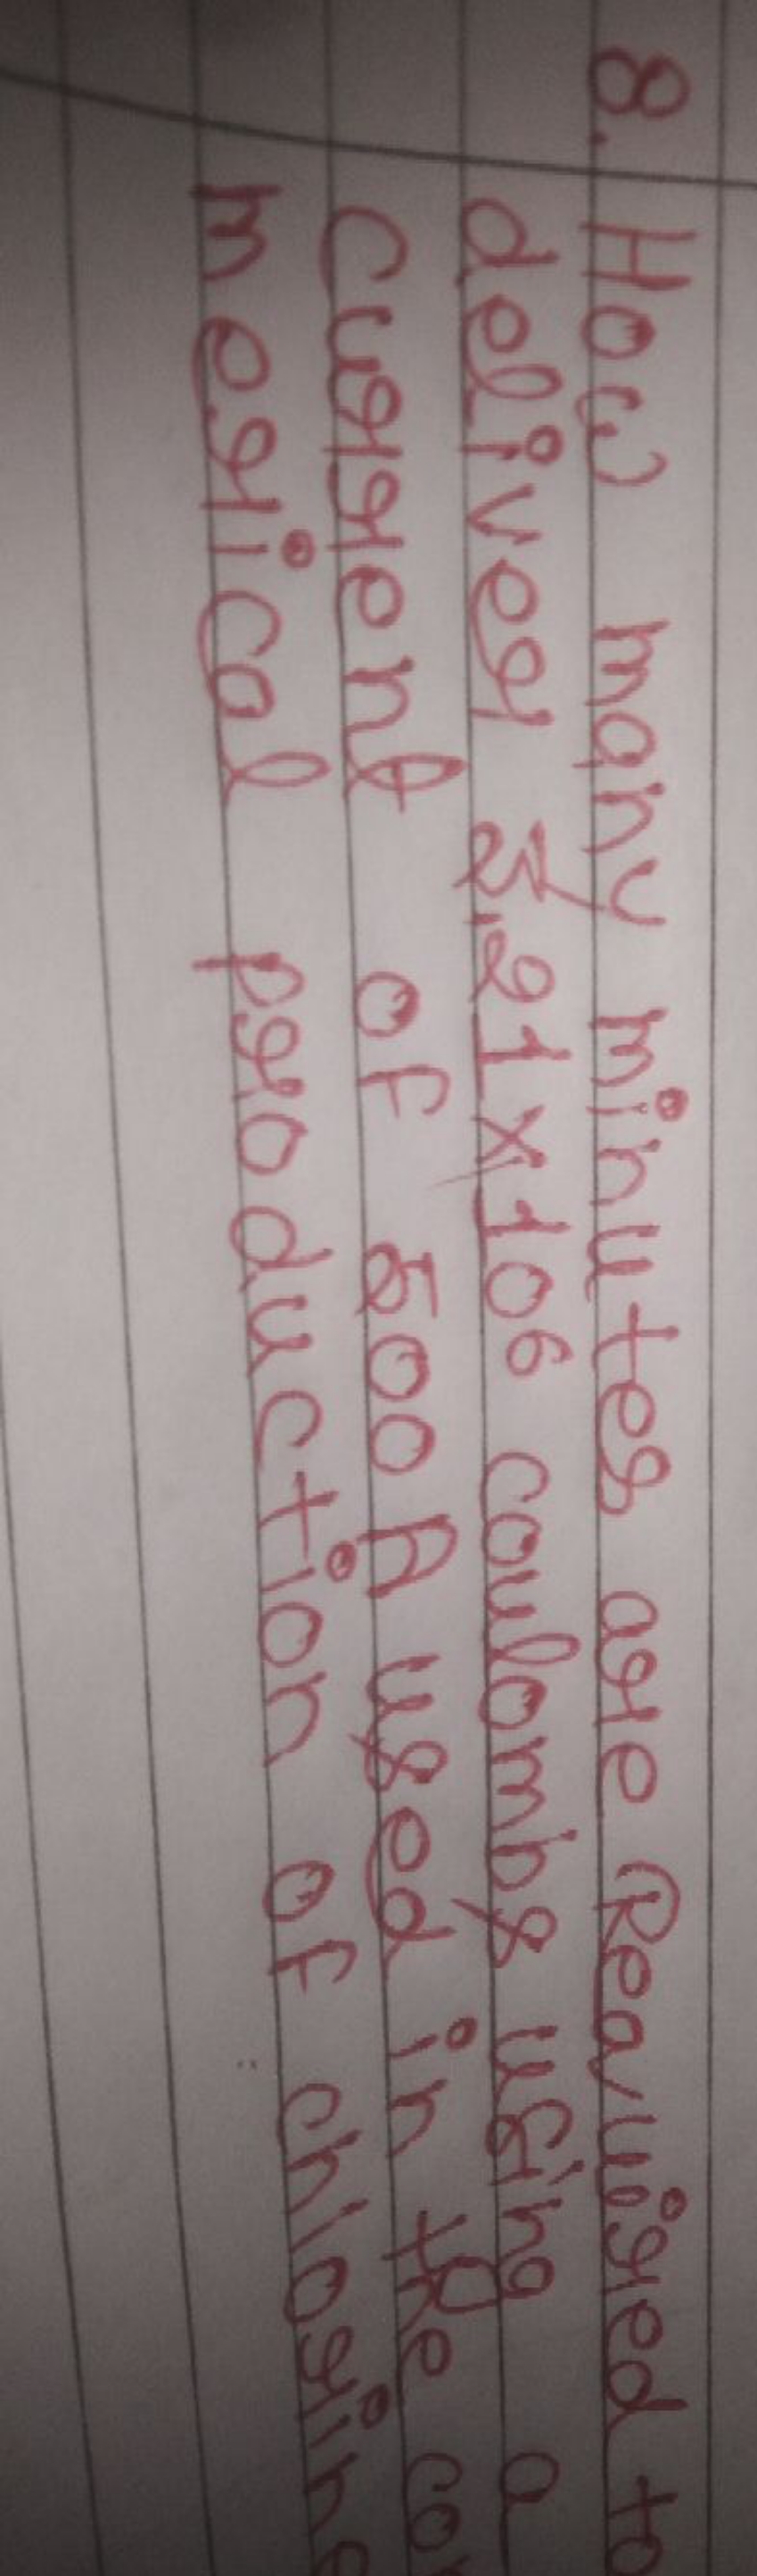 8. How many minutes are Required to
deliver 3.21x10⁶ coulombs using a
current of 500 A used in the com
merical production of chlorine